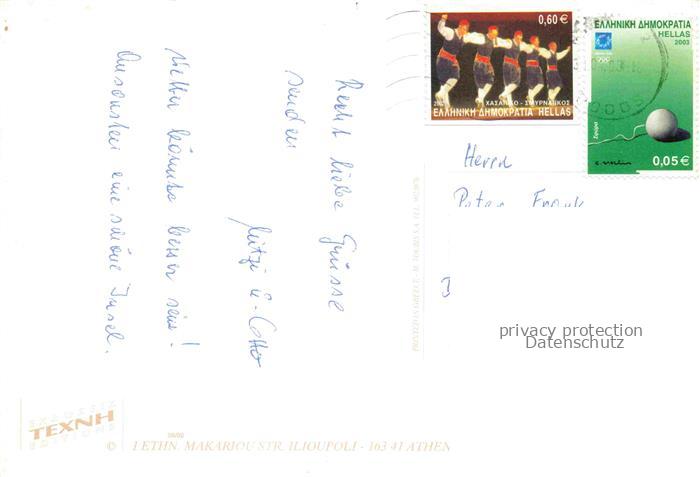 Recht liebe Grüsse
senden
Mitzi u. Otto
Wetter könnte besser sein!
Ansonsten eine schöne Insel.
0,60 €
ΧΑΣΑΠΙΚΟ - ΣΜΥΡΝΑΙΙΚΟΣ
ΕΛΛΗΝΙΚΗ ΔΗΜΟΚΡΑΤΙΑ HELLAS
ΕΛΛΗΝΙΚΗ ΔΗΜΟΚΡΑΤΙΑ
HELLAS
2003
Σφαίρα
0,05 €
Herrn
Peter Frank
privacy protection
Datenschutz
ΕΚΔΟΣΕΙΣ
ΤΕΧΝΗ
EDITIONS
© 1 ETHN. MAKARIOU STR. ILIOUPOLI - 163 41 ATHEN